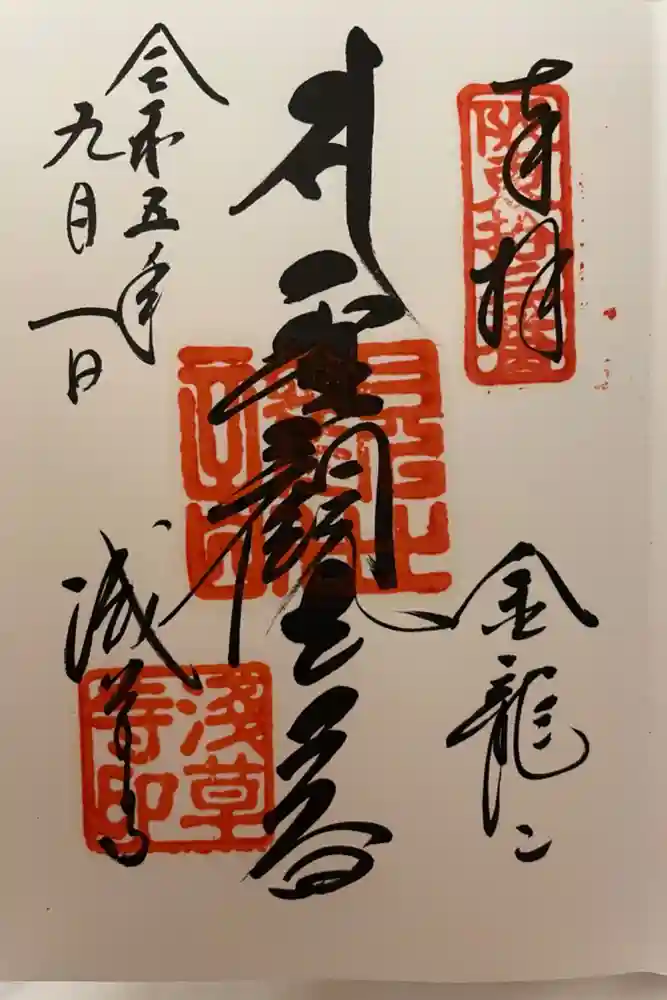 奉拝
坂東拾三番
金龍山
聖観世音
令和五年
九月一日
浅草寺
淺草
寺印